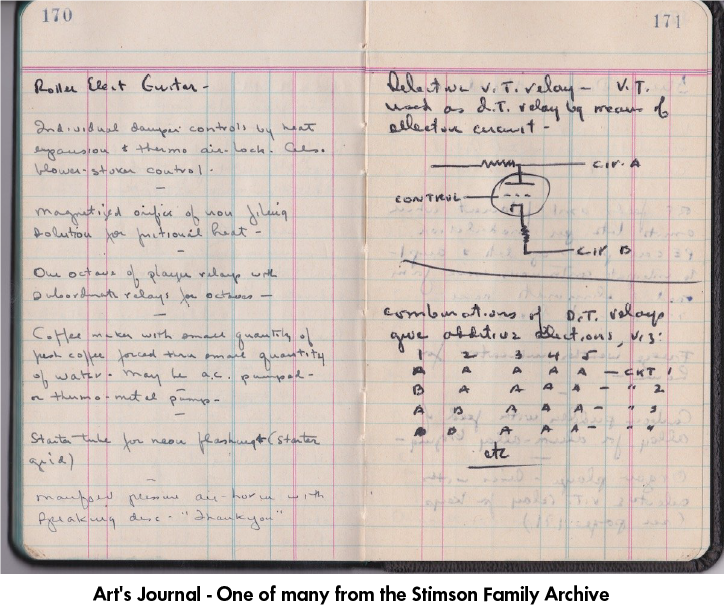 170
Roller Elect Guitar -
Individual damper controls by heat
expansion & thermo air-lock. Also
blower-stoker control.
Magnetized orifice of iron filing
solution for frictional heat -
One octave of player relays with
subordinate relays for octaves -
Coffee maker with small quantity of
fresh coffee forced thru small quantity
of water. May be a.c. pumped -
or thermo-metal pump -
Starter-tube for neon flashing (starter
grid)
Manifold pressure air-horn with
speaking disc - "Thank you"
171
Selective V.T. relay - V.T.
used as D.T. relay by means of
selector circuit -
CIR. A
CONTROL
CIR B
combinations of D.T. relays
give additive selections, viz:
1 2 3 4 5
A A A A A - CKT 1
B A A A A - " 2
A B A A A - " 3
B B A A A - " 4
etc
Art's Journal - One of many from the Stimson Family Archive